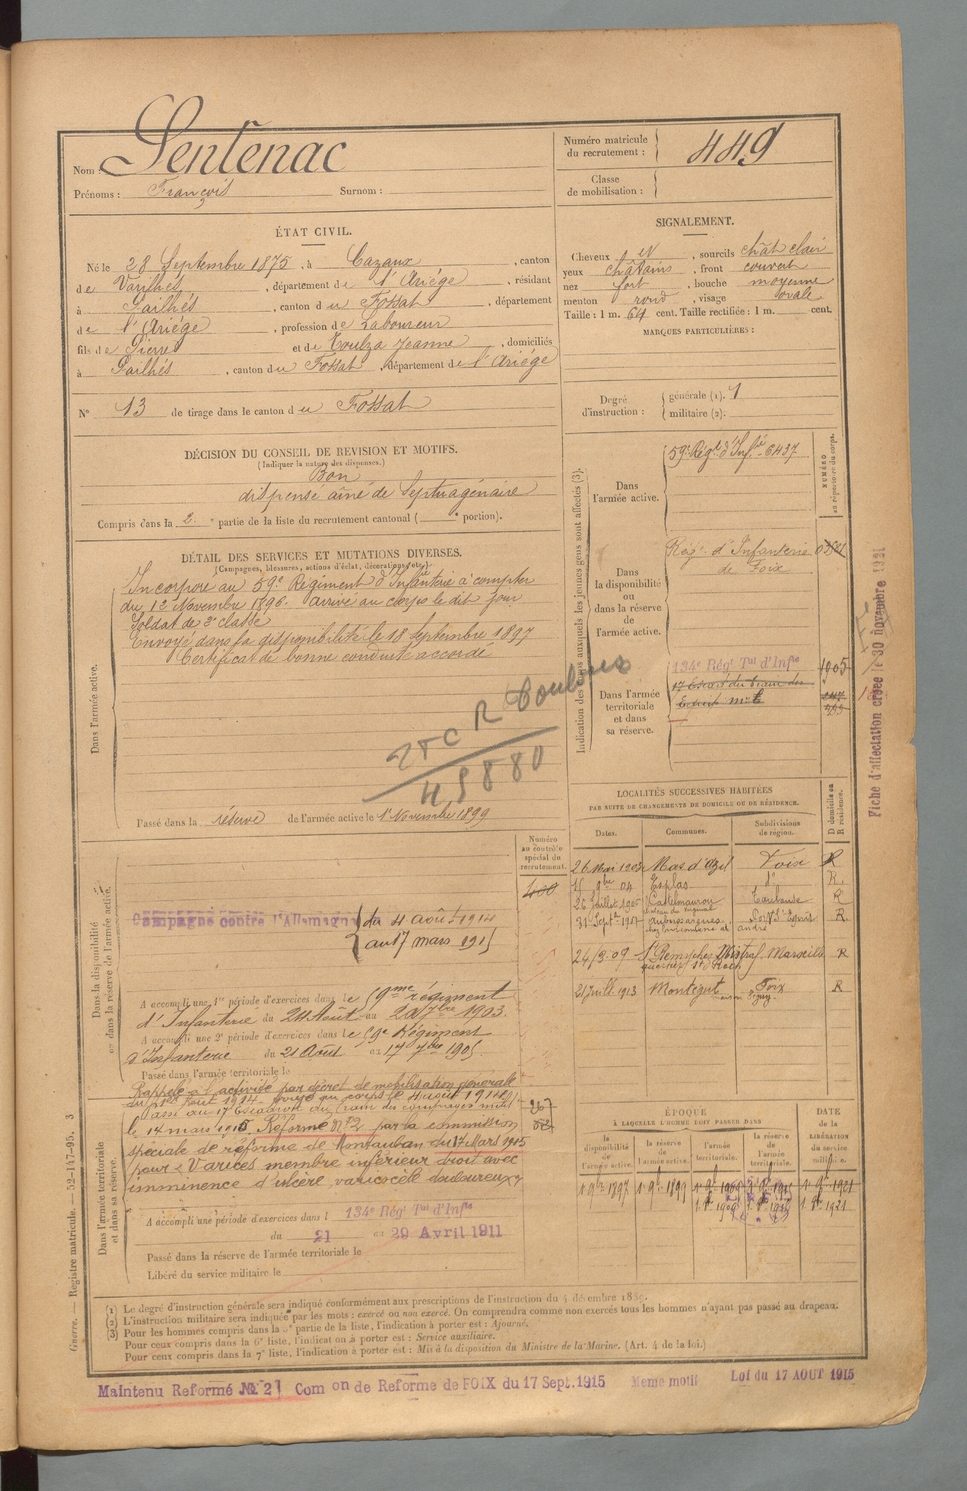 Nom : Sentenac
Prénoms : François Surnom :
Numéro matricule du recrutement : 449
Classe de mobilisation :
ÉTAT CIVIL.
Né le 28 Septembre 1875, à Cazaux, canton
de Varilhes, département de l'Ariége, résidant
à Pailhés, canton du Fossat, département
de l'Ariége, profession de Laboureur
fils de Pierre et de Toulza Jeanne, domiciliés
à Pailhés, canton du Fossat, département de l'Ariége
N° 13 de tirage dans le canton du Fossat
SIGNALEMENT.
Cheveux et, sourcils chât clair
yeux châtains, front couvert
nez fort, bouche moyenne
menton rond, visage ovale
Taille : 1 m. 64 cent. Taille rectifiée : 1 m. cent.
MARQUES PARTICULIÈRES :
Degré d'instruction : générale (1). 1
militaire (2).
DÉCISION DU CONSEIL DE REVISION ET MOTIFS.
(Indiquer la nature des dispenses.)
Bon
dispensé aîné de Septuagénaire
Compris dans la 2e partie de la liste du recrutement cantonal ( e portion).
DÉTAIL DES SERVICES ET MUTATIONS DIVERSES.
(Campagnes, blessures, actions d'éclat, décorations, etc.)
Dans l'armée active.
Incorporé au 59e Regiment d'Infanterie à compter
du 12 Novembre 1896. Arrivé au corps le dit jour
Soldat de 2e classe
Envoyé dans la disponibilité le 18 Septembre 1897
Certificat de bonne conduite accordé
Toulouse
45880
Passé dans la réserve de l'armée active le 1er Novembre 1899
Indication des corps auxquels les jeunes gens sont affectés (3).
NUMÉRO au répertoire du corps.
Dans l'armée active.
59e Régt d'Infie 6437
Dans la disponibilité ou dans la réserve de l'armée active.
Régt d'Infanterie
de Foix
Dans l'armée territoriale et dans sa réserve.
134e Régt Tal d'Infie 1905
17 Escad du train des
Fiche d'affectation créée le 30 novembre 1921
LOCALITÉS SUCCESSIVES HABITÉES
PAR SUITE DE CHANGEMENTS DE DOMICILE OU DE RÉSIDENCE.
Dates. Communes. Subdivisions de région. D domicile ou R résidence.
26 Mai 1902 Mas d'Azil Foix R
15 9bre 04 Esplas do R.
26 Juillet 1905 Castelmaurou Toulouse R
31 Septe 1907 Aubessargues Pont St Esprit R.
24/3-09 St Remy Marseille R
21 Juill. 1913 Montégut Foix R
Numéro au contrôle spécial du recrutement.
400
Dans la disponibilité ou dans la réserve de l'armée active.
Campagne contre l'Allemagne du 4 août 1914
au 17 mars 1915
A accompli une 1re période d'exercices dans le 59me régiment
d'Infanterie du 24 Août au 20 7bre 1903.
A accompli une 2e période d'exercices dans le 59e Régiment
d'Infanterie du 21 Août au 17 7bre 1905.
Passé dans l'armée territoriale le
Dans l'armée territoriale et dans sa réserve.
Rappelé à l'activité par décret de mobilisation générale
du 1er Août 1914. Arrivé au corps le 4 août 1914
Passé au 17 Escadron du Train des équipages milit
le 14 mars 1915. Réformé N°2 par la commission
spéciale de réforme de Montauban du 17 Mars 1915
pour « Varices membre inférieur droit avec
imminence d'ulcère, varicocèle douloureux »
267
A accompli une période d'exercices dans l 134e Régt Tal d'Infie
du 21 au 29 Avril 1911
Passé dans la réserve de l'armée territoriale le
Libéré du service militaire le
ÉPOQUE
À LAQUELLE L'HOMME DOIT PASSER DANS
la disponibilité de l'armée active. la réserve de l'armée active. l'armée territoriale. la réserve de l'armée territoriale.
DATE DE LA LIBÉRATION du service militaire.
1 9bre 1897 1 9bre 1899 1 9bre 1909 1 9bre 1915 1 9bre 1921
Guerre. — Registre matricule. — 52-147-95. 3
(1) Le degré d'instruction générale sera indiqué conformément aux prescriptions de l'instruction du 4 décembre 1889.
(2) L'instruction militaire sera indiquée par les mots : exercé ou non exercé. On comprendra comme non exercés tous les hommes n'ayant pas passé au drapeau.
(3) Pour les hommes compris dans la 5e partie de la liste, l'indication à porter est : Ajourné.
Pour ceux compris dans la 6e liste, l'indication à porter est : Service auxiliaire.
Pour ceux compris dans la 7e liste, l'indication à porter est : Mis à la disposition du Ministre de la Marine. (Art. 4 de la loi.)
Maintenu Reformé N° 2 Com on de Reforme de FOIX du 17 Sept. 1915 Meme motif Loi du 17 AOUT 1915